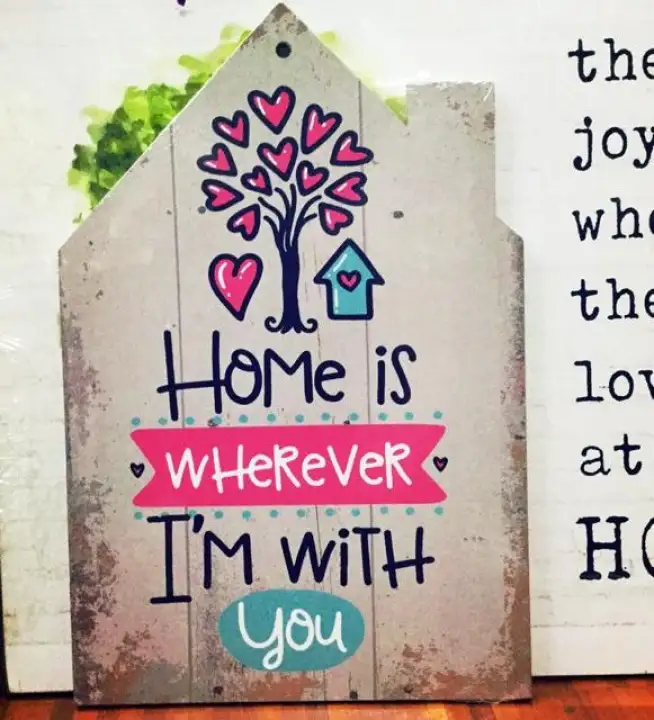 Home is
WHEREVER
I'M WITH
You
the
joy
the
at